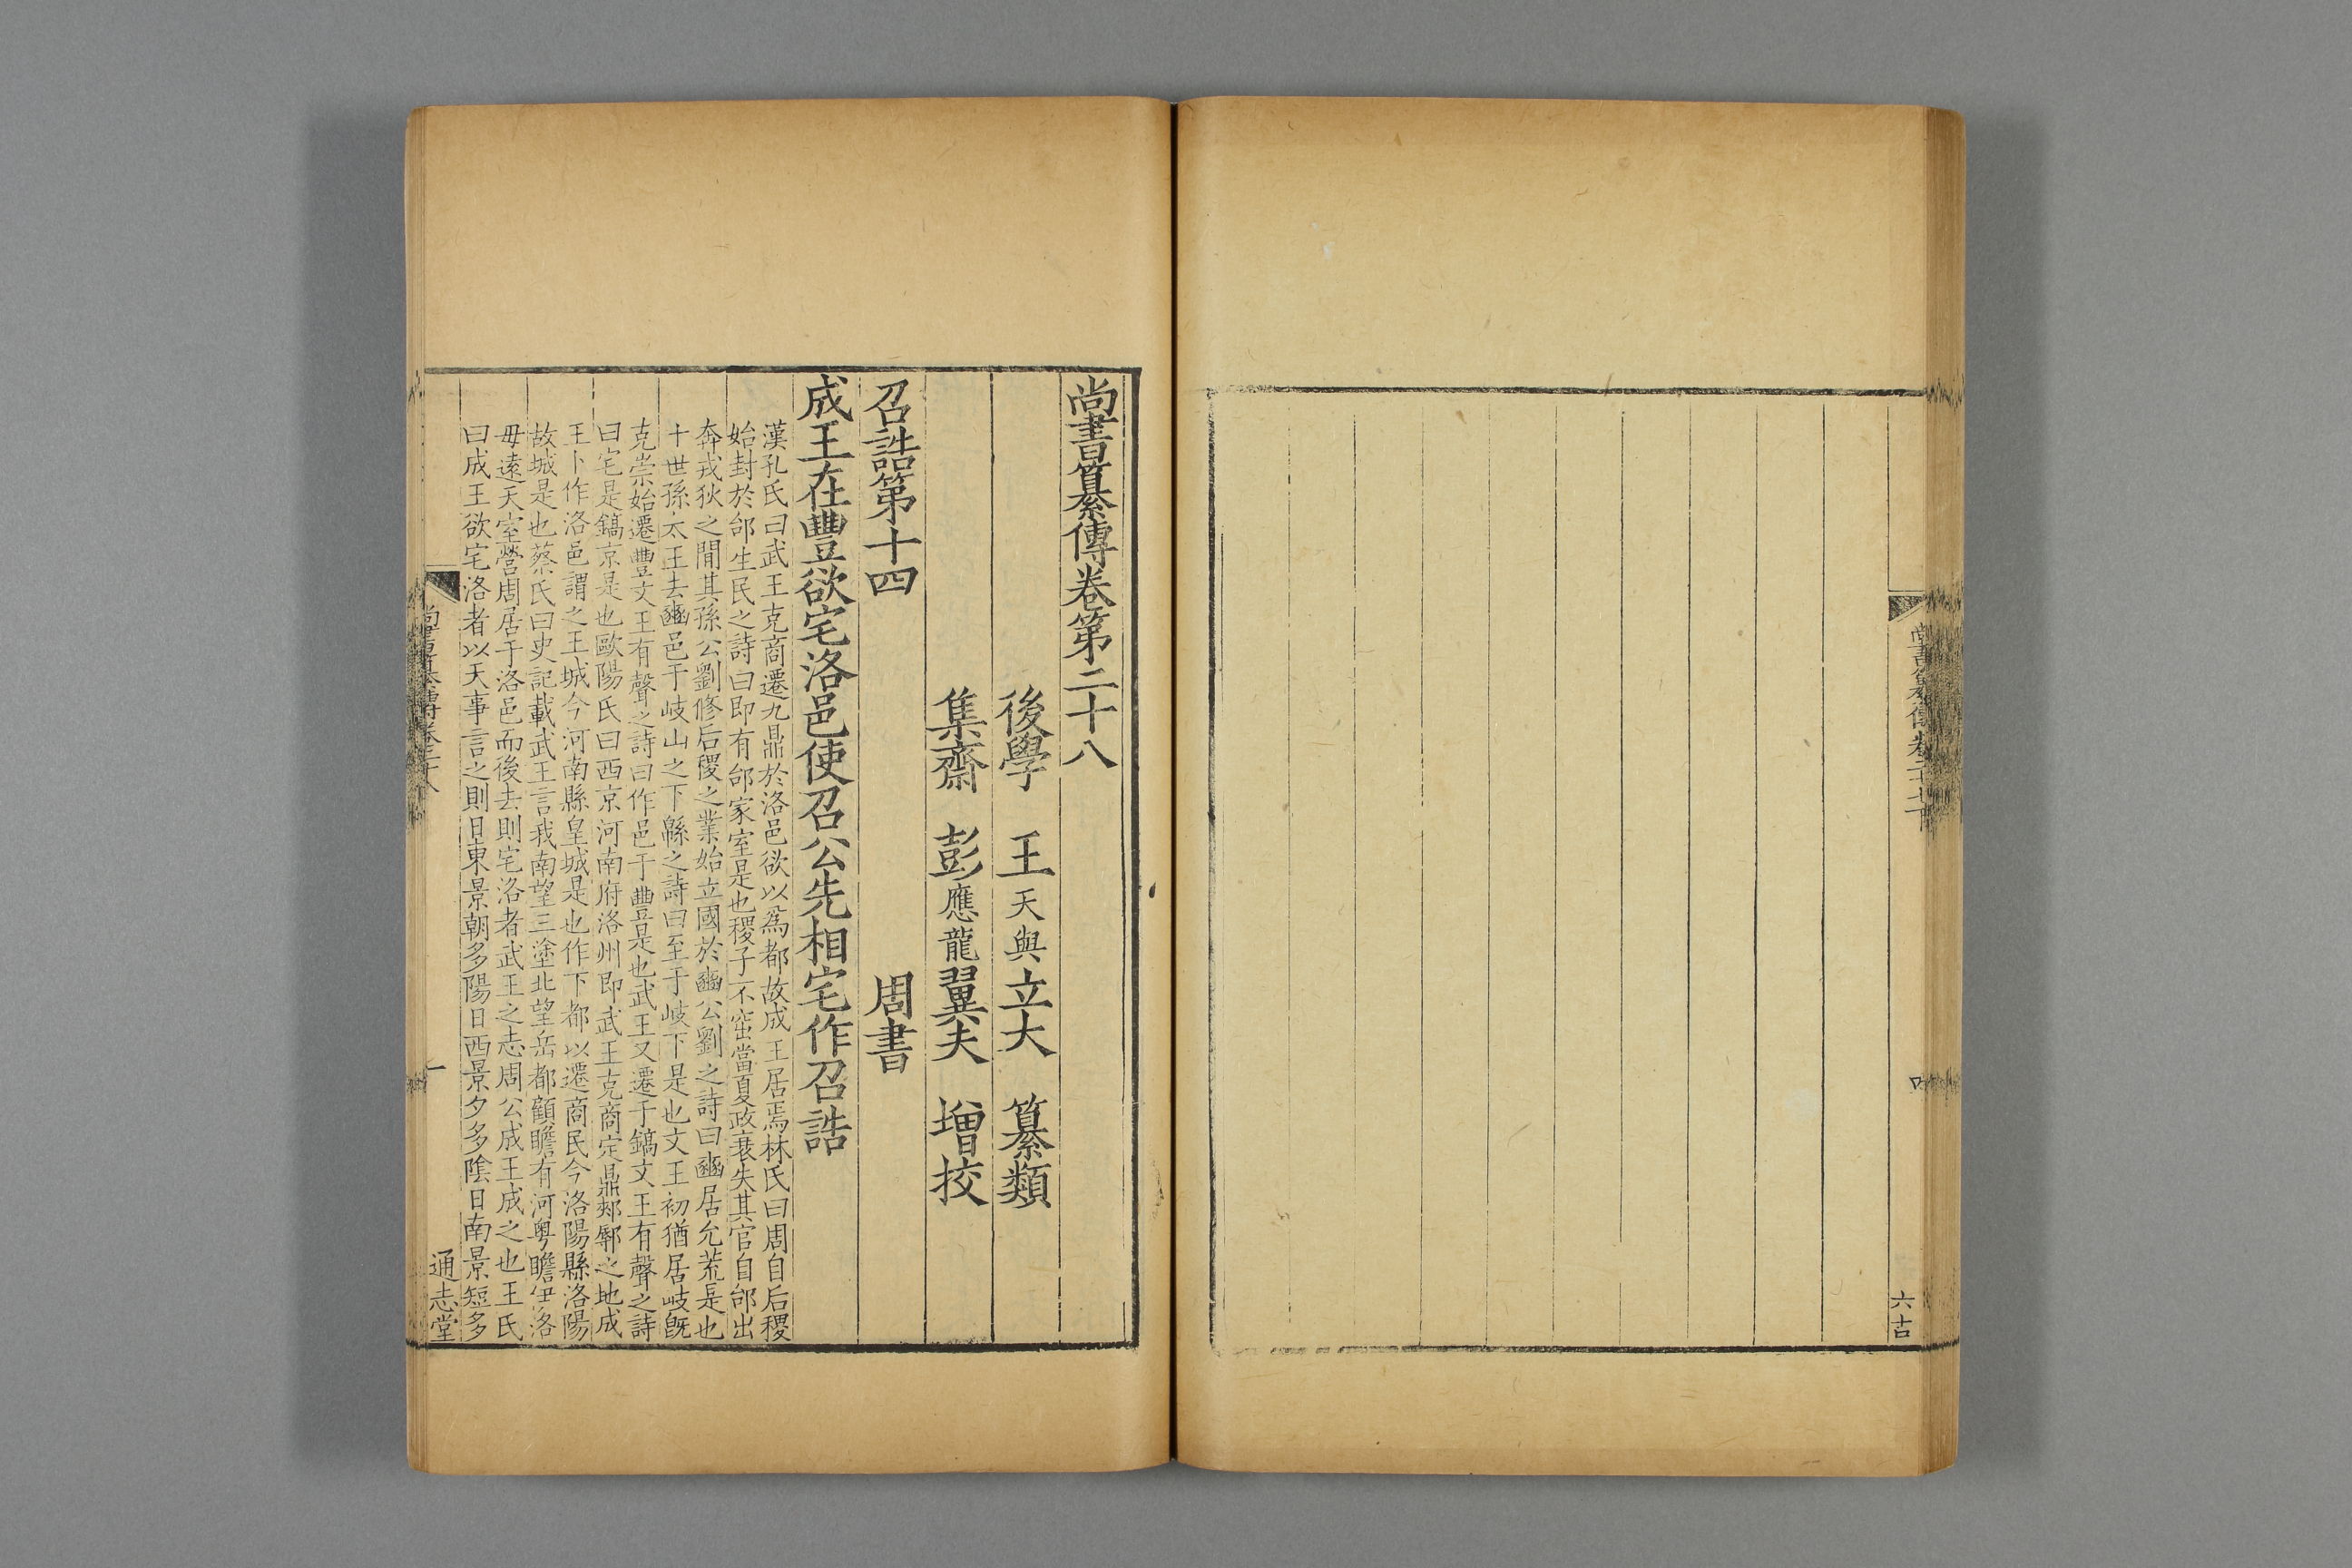 尚書纂傳卷二十七
六吉
尚書纂傳卷第二十八
後學　王天與立大　纂類
集齋　彭應龍翼夫　增挍
召誥第十四　周書
成王在豐欲宅洛邑使召公先相宅作召誥
漢孔氏曰武王克商遷九鼎於洛邑欲以爲都故成王居焉林氏曰周自后稷
始封於邰生民之詩曰即有邰家室是也稷子不窋當夏政衰失其官自邰出
奔戎狄之間其孫公劉修后稷之業始立國於豳公劉之詩曰豳居允荒是也
十世孫太王去豳邑于岐山之下緜之詩曰至于岐下是也文王初猶居岐旣
克崇始遷豐文王有聲之詩曰作邑于豐是也武王又遷于鎬文王有聲之詩
曰宅是鎬京是也歐陽氏曰西京河南府洛州即武王克商定鼎郟鄏之地成
王卜作洛邑謂之王城今河南縣皇城是也作下都以遷商民今洛陽縣洛陽
故城是也蔡氏曰史記載武王言我南望三塗北望岳都顧瞻有河粤瞻伊洛
毋遠天室營周居于洛邑而後去則宅洛者武王之志周公成王成之也王氏
曰成王欲宅洛者以天事言之則日東景朝多陽日西景夕多陰日南景短多
尚書纂傳卷二十八
一
通志堂